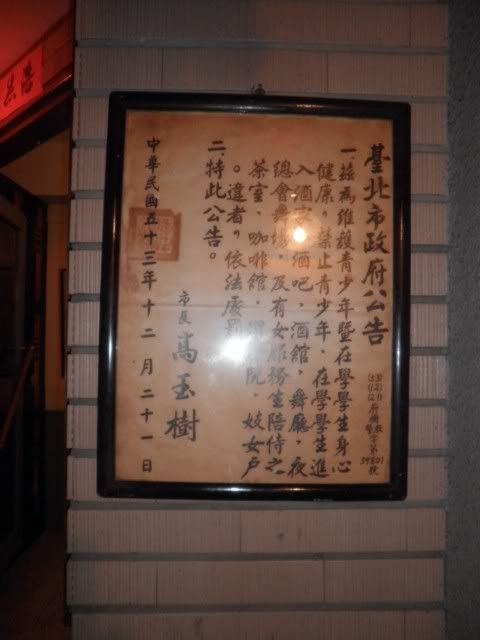 臺北市政府公告
(53)(12)(21)府機教字第59801號
一、茲為維護青少年暨在學學生身心
健康。禁止青少年、在學學生進
入酒家、酒吧、酒館、舞廳、夜
總會舞場、及有女服務生陪侍之
茶室、咖啡館、院、妓女戶
。違者，依法處
二、特此公告。
市長 高玉樹
中華民國五十三年十二月二十一日